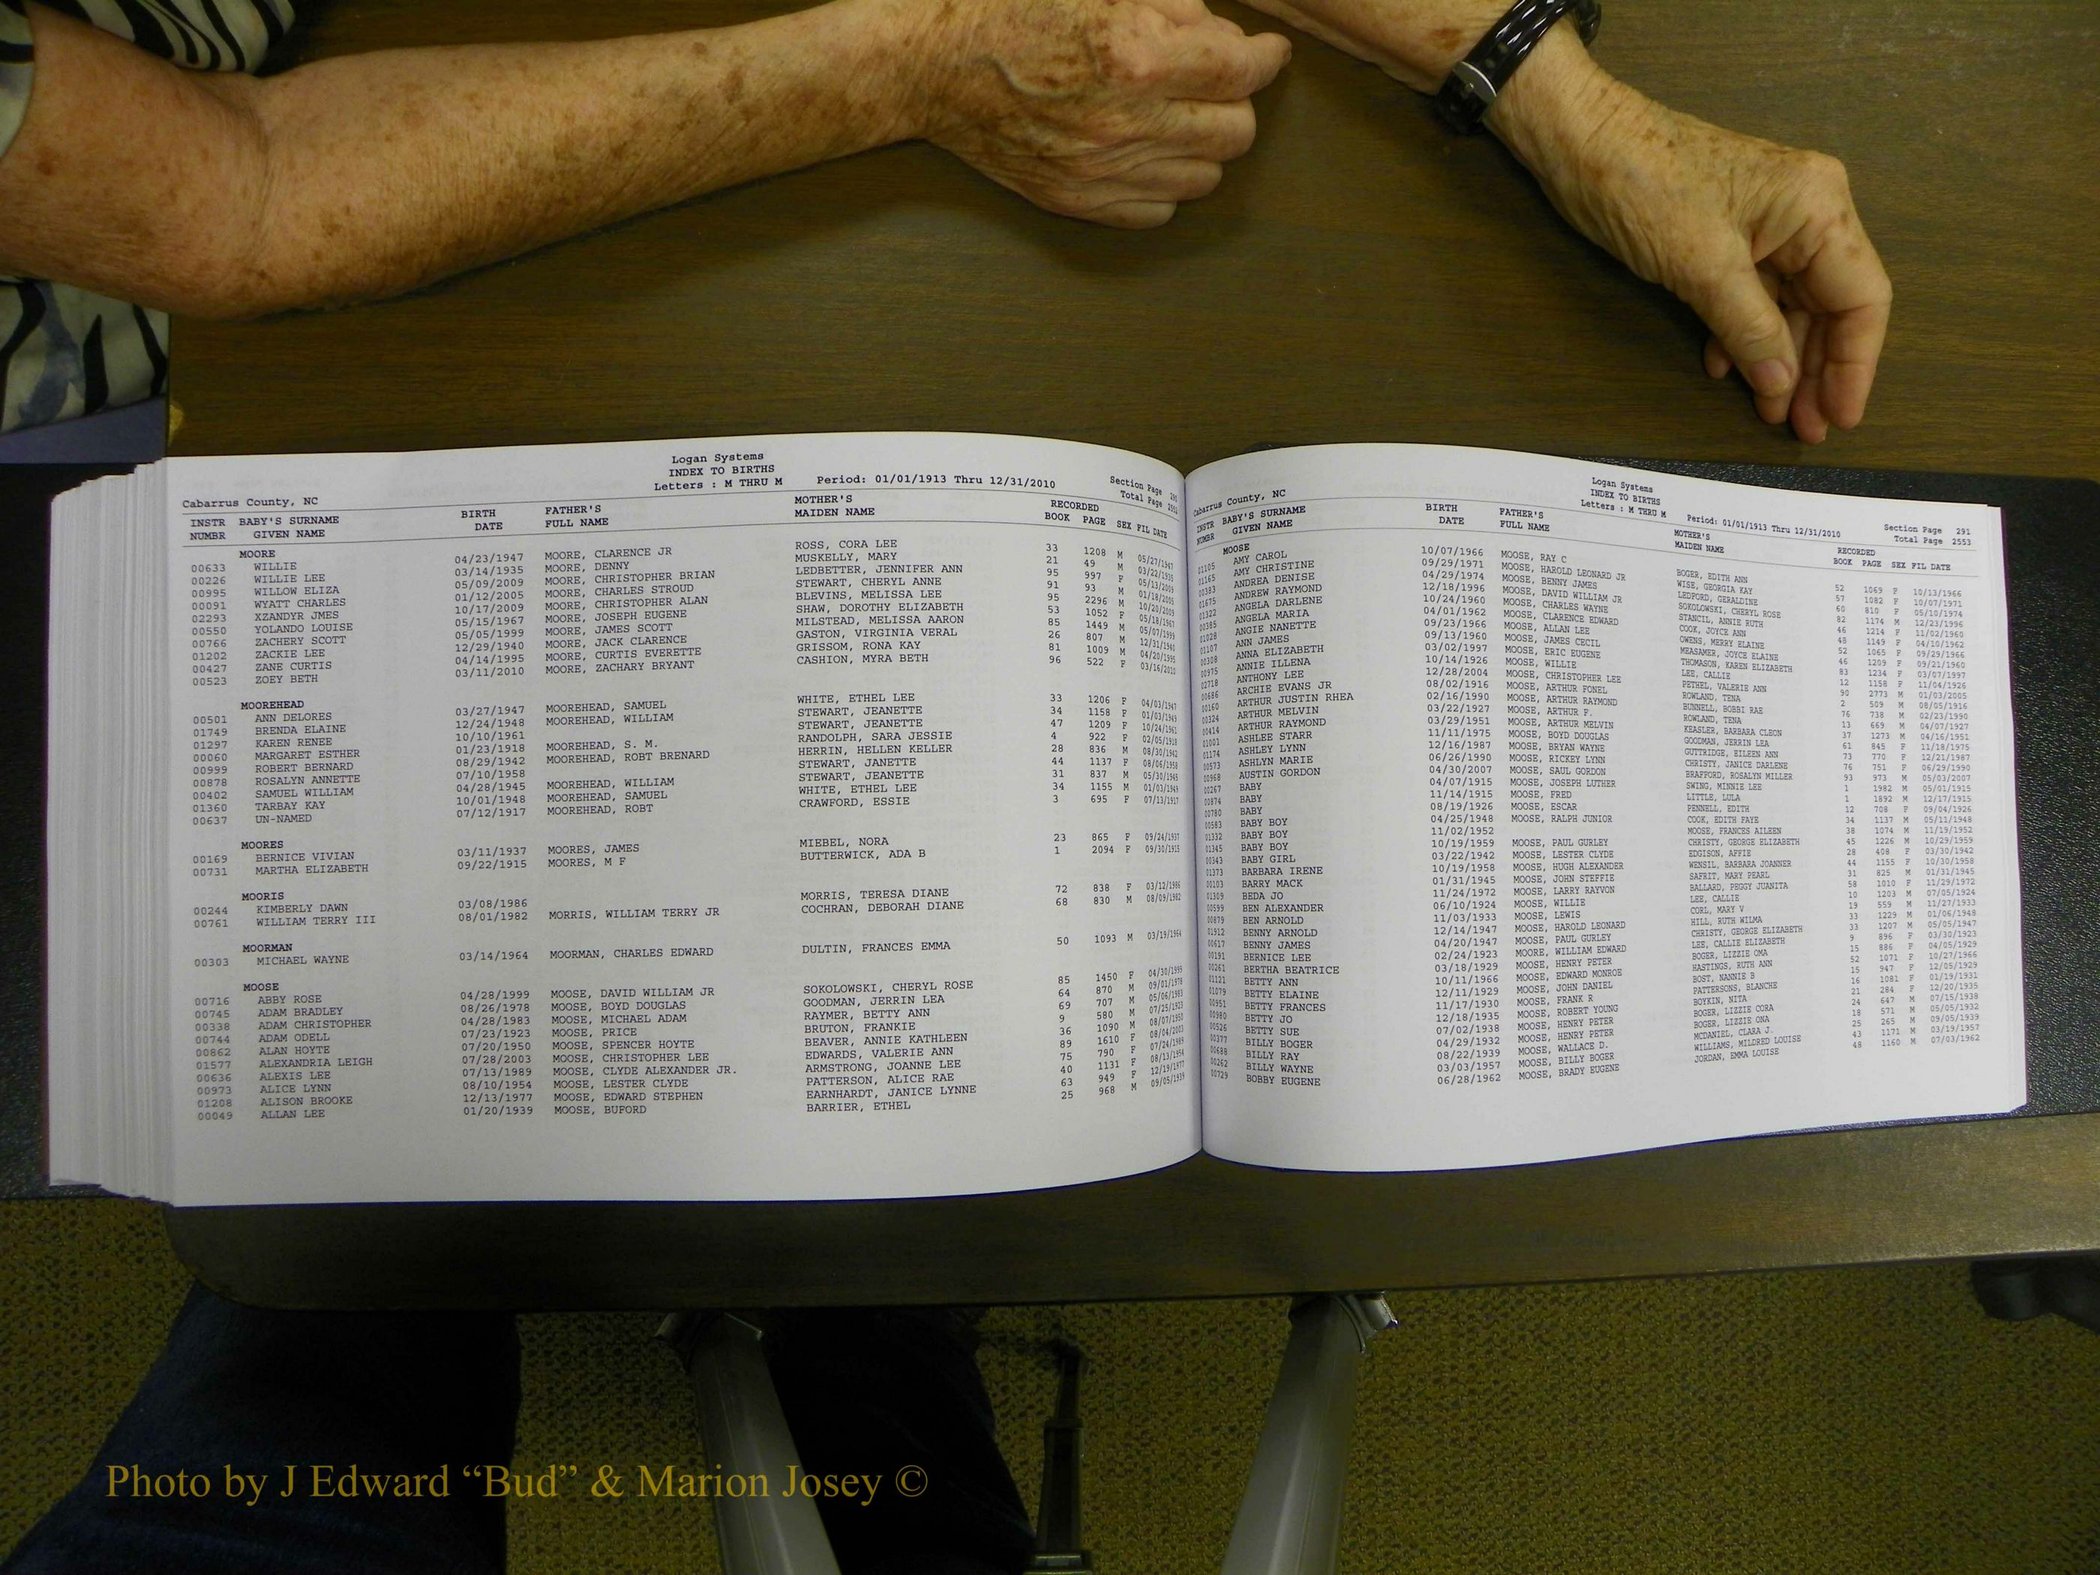 Logan Systems
INDEX TO BIRTHS
Letters : M THRU M Period: 01/01/1913 Thru 12/31/2010
Section Page 290
Total Page 2552
Cabarrus County, NC
INSTR BABY'S SURNAME BIRTH FATHER'S MOTHER'S RECORDED
NUMBR GIVEN NAME DATE FULL NAME MAIDEN NAME BOOK PAGE SEX FIL DATE
MOORE
00633 WILLIE 04/23/1947 MOORE, CLARENCE JR ROSS, CORA LEE 33 1208 M 05/27/1947
00226 WILLIE LEE 03/14/1935 MOORE, DENNY MUSKELLY, MARY 21 49 M 03/22/1935
00995 WILLOW ELIZA 05/09/2009 MOORE, CHRISTOPHER BRIAN LEDBETTER, JENNIFER ANN 95 997 F 05/13/2009
00091 WYATT CHARLES 01/12/2005 MOORE, CHARLES STROUD STEWART, CHERYL ANNE 91 93 M 01/18/2005
02293 XZANDYR JMES 10/17/2009 MOORE, CHRISTOPHER ALAN BLEVINS, MELISSA LEE 95 2296 M 10/20/2009
00550 YOLANDO LOUISE 05/15/1967 MOORE, JOSEPH EUGENE SHAW, DOROTHY ELIZABETH 53 1052 F 05/18/1967
00766 ZACHERY SCOTT 05/05/1999 MOORE, JAMES SCOTT MILSTEAD, MELISSA AARON 85 1449 M 05/07/1999
01202 ZACKIE LEE 12/29/1940 MOORE, JACK CLARENCE GASTON, VIRGINIA VERAL 26 807 M 12/31/1940
00427 ZANE CURTIS 04/14/1995 MOORE, CURTIS EVERETTE GRISSOM, RONA KAY 81 1009 M 04/20/1995
00523 ZOEY BETH 03/11/2010 MOORE, ZACHARY BRYANT CASHION, MYRA BETH 96 522 F 03/16/2010
MOOREHEAD
00501 ANN DELORES 03/27/1947 MOOREHEAD, SAMUEL WHITE, ETHEL LEE 33 1206 F 04/03/1947
01749 BRENDA ELAINE 12/24/1948 MOOREHEAD, WILLIAM STEWART, JEANETTE 34 1158 F 01/03/1949
01297 KAREN RENEE 10/10/1961 STEWART, JEANETTE 47 1209 F 10/24/1961
00060 MARGARET ESTHER 01/23/1918 MOOREHEAD, S. M. RANDOLPH, SARA JESSIE 4 922 F 02/05/1918
00999 ROBERT BERNARD 08/29/1942 MOOREHEAD, ROBT BRENARD HERRIN, HELLEN KELLER 28 836 M 08/30/1942
00878 ROSALYN ANNETTE 07/10/1958 STEWART, JANETTE 44 1137 F 08/06/1958
00402 SAMUEL WILLIAM 04/28/1945 MOOREHEAD, WILLIAM STEWART, JEANETTE 31 837 M 05/30/1945
01360 TARBAY KAY 10/01/1948 MOOREHEAD, SAMUEL WHITE, ETHEL LEE 34 1155 M 01/03/1949
00637 UN-NAMED 07/12/1917 MOOREHEAD, ROBT CRAWFORD, ESSIE 3 695 F 07/13/1917
MOORES
00169 BERNICE VIVIAN 03/11/1937 MOORES, JAMES MIEBEL, NORA 23 865 F 09/24/1937
00731 MARTHA ELIZABETH 09/22/1915 MOORES, M F BUTTERWICK, ADA B 1 2094 F 09/30/1915
MOORIS
00244 KIMBERLY DAWN 03/08/1986 MORRIS, TERESA DIANE 72 838 F 03/12/1986
00761 WILLIAM TERRY III 08/01/1982 MORRIS, WILLIAM TERRY JR COCHRAN, DEBORAH DIANE 68 830 M 08/09/1982
MOORMAN
00303 MICHAEL WAYNE 03/14/1964 MOORMAN, CHARLES EDWARD DULTIN, FRANCES EMMA 50 1093 M 03/19/1964
MOOSE
00716 ABBY ROSE 04/28/1999 MOOSE, DAVID WILLIAM JR SOKOLOWSKI, CHERYL ROSE 85 1450 F 04/30/1999
00745 ADAM BRADLEY 08/26/1978 MOOSE, BOYD DOUGLAS GOODMAN, JERRIN LEA 64 870 M 09/01/1978
00338 ADAM CHRISTOPHER 04/28/1983 MOOSE, MICHAEL ADAM RAYMER, BETTY ANN 69 707 M 05/06/1983
00744 ADAM ODELL 07/23/1923 MOOSE, PRICE BRUTON, FRANKIE 9 580 M 07/25/1923
00862 ALAN HOYTE 07/20/1950 MOOSE, SPENCER HOYTE BEAVER, ANNIE KATHLEEN 36 1090 M 08/07/1950
01577 ALEXANDRIA LEIGH 07/28/2003 MOOSE, CHRISTOPHER LEE EDWARDS, VALERIE ANN 89 1610 F 08/04/2003
00636 ALEXIS LEE 07/13/1989 MOOSE, CLYDE ALEXANDER JR. ARMSTRONG, JOANNE LEE 75 790 F 07/24/1989
00973 ALICE LYNN 08/10/1954 MOOSE, LESTER CLYDE PATTERSON, ALICE RAE 40 1131 F 08/13/1954
01208 ALISON BROOKE 12/13/1977 MOOSE, EDWARD STEPHEN EARNHARDT, JANICE LYNNE 63 949 F 12/19/1977
00049 ALLAN LEE 01/20/1939 MOOSE, BUFORD BARRIER, ETHEL 25 968 M 09/05/1939
Logan Systems
INDEX TO BIRTHS
Letters : M THRU M Period: 01/01/1913 Thru 12/31/2010
Section Page 291
Total Page 2553
Cabarrus County, NC
INSTR BABY'S SURNAME BIRTH FATHER'S MOTHER'S RECORDED
NUMBR GIVEN NAME DATE FULL NAME MAIDEN NAME BOOK PAGE SEX FIL DATE
MOOSE
01105 AMY CAROL 10/07/1966 MOOSE, RAY C BOGER, EDITH ANN 52 1069 F 10/13/1966
01165 AMY CHRISTINE 09/29/1971 MOOSE, HAROLD LEONARD JR WISE, GEORGIA KAY 57 1082 F 10/07/1971
00383 ANDREA DENISE 04/29/1974 MOOSE, BENNY JAMES LEDFORD, GERALDINE 60 810 F 05/10/1974
01675 ANDREW RAYMOND 12/18/1996 MOOSE, DAVID WILLIAM JR SOKOLOWSKI, CHERYL ROSE 82 1174 M 12/23/1996
01322 ANGELA DARLENE 10/24/1960 MOOSE, CHARLES WAYNE STANCIL, ANNIE RUTH 46 1214 F 11/02/1960
00385 ANGELA MARIA 04/01/1962 MOOSE, CLARENCE EDWARD COOK, JOYCE ANN 48 1149 F 04/10/1962
01028 ANGIE NANETTE 09/23/1966 MOOSE, ALLAN LEE OWENS, MERRY ELAINE 52 1065 F 09/29/1966
01107 ANN JAMES 09/13/1960 MOOSE, JAMES CECIL MEASAMER, JOYCE ELAINE 46 1209 F 09/21/1960
00308 ANNA ELIZABETH 03/02/1997 MOOSE, ERIC EUGENE THOMASON, KAREN ELIZABETH 83 1234 F 03/07/1997
00975 ANNIE ILLENA 10/14/1926 MOOSE, WILLIE LEE, CALLIE 12 1158 F 11/04/1926
02718 ANTHONY LEE 12/28/2004 MOOSE, CHRISTOPHER LEE PETHEL, VALERIE ANN 90 2773 M 01/03/2005
00686 ARCHIE EVANS JR 08/02/1916 MOOSE, ARTHUR FONEL ROWLAND, TENA 2 509 M 08/05/1916
00160 ARTHUR JUSTIN RHEA 02/16/1990 MOOSE, ARTHUR RAYMOND BUNNELL, BOBBI RAE 76 738 M 02/23/1990
00324 ARTHUR MELVIN 03/22/1927 MOOSE, ARTHUR F. ROWLAND, TENA 13 669 M 04/07/1927
00414 ARTHUR RAYMOND 03/29/1951 MOOSE, ARTHUR MELVIN KEASLER, BARBARA CLEON 37 1273 M 04/16/1951
01001 ASHLEE STARR 11/11/1975 MOOSE, BOYD DOUGLAS GOODMAN, JERRIN LEA 61 845 F 11/18/1975
01174 ASHLEY LYNN 12/16/1987 MOOSE, BRYAN WAYNE GUTTRIDGE, EILEEN ANN 73 770 F 12/21/1987
00573 ASHLYN MARIE 06/26/1990 MOOSE, RICKEY LYNN CHRISTY, JANICE DARLENE 76 751 F 06/29/1990
00968 AUSTIN GORDON 04/30/2007 MOOSE, SAUL GORDON BRAFFORD, ROSALYN MILLER 93 973 M 05/03/2007
00267 BABY 04/07/1915 MOOSE, JOSEPH LUTHER SWING, MINNIE LEE 1 1982 M 05/01/1915
00874 BABY 11/14/1915 MOOSE, FRED LITTLE, LULA 1 1892 M 12/17/1915
00780 BABY 08/19/1926 MOOSE, ESCAR PENNELL, EDITH 12 708 F 09/04/1926
00583 BABY BOY 04/25/1948 MOOSE, RALPH JUNIOR COOK, EDITH FAYE 34 1137 M 05/11/1948
01332 BABY BOY 11/02/1952 MOOSE, FRANCES AILEEN 38 1074 M 11/19/1952
01345 BABY BOY 10/19/1959 MOOSE, PAUL GURLEY CHRISTY, GEORGE ELIZABETH 45 1226 M 10/29/1959
00343 BABY GIRL 03/22/1942 MOOSE, LESTER CLYDE EDGISON, AFFIE 28 408 F 03/30/1942
01373 BARBARA IRENE 10/19/1958 MOOSE, HUGH ALEXANDER WENSIL, BARBARA JOANNER 44 1155 F 10/30/1958
00103 BARRY MACK 01/31/1945 MOOSE, JOHN STEFFIE SAFRIT, MARY PEARL 31 825 M 01/31/1945
01309 BEDA JO 11/24/1972 MOOSE, LARRY RAYVON BALLARD, PEGGY JUANITA 58 1010 F 11/29/1972
00599 BEN ALEXANDER 06/10/1924 MOOSE, WILLIE LEE, CALLIE 10 1203 M 07/05/1924
00879 BEN ARNOLD 11/03/1933 MOOSE, LEWIS CORL, MARY V 19 559 M 11/27/1933
01912 BENNY ARNOLD 12/14/1947 MOOSE, HAROLD LEONARD HILL, RUTH WILMA 33 1229 M 01/06/1948
00617 BENNY JAMES 04/20/1947 MOOSE, PAUL GURLEY CHRISTY, GEORGE ELIZABETH 33 1207 M 05/05/1947
00191 BERNICE LEE 02/24/1923 MOORE, WILLIAM EDWARD LEE, CALLIE ELIZABETH 9 896 F 03/30/1923
00261 BERTHA BEATRICE 03/18/1929 MOOSE, HENRY PETER BOGER, LIZZIE OMA 15 886 F 04/05/1929
01121 BETTY ANN 10/11/1966 MOOSE, EDWARD MONROE HASTINGS, RUTH ANN 52 1071 F 10/27/1966
01079 BETTY ELAINE 12/11/1929 MOOSE, JOHN DANIEL BOST, NANNIE B 15 947 F 12/05/1929
00951 BETTY FRANCES 11/17/1930 MOOSE, FRANK R PATTERSONS, BLANCHE 16 1081 F 01/19/1931
00980 BETTY JO 12/18/1935 MOOSE, ROBERT YOUNG BOYKIN, NITA 21 284 F 12/20/1935
00526 BETTY SUE 07/02/1938 MOOSE, HENRY PETER BOGER, LIZZIE CORA 24 647 M 07/15/1938
00377 BILLY BOGER 04/29/1932 MOOSE, HENRY PETER BOGER, LIZZIE ONA 18 571 M 05/05/1932
00688 BILLY RAY 08/22/1939 MOOSE, WALLACE D. MCDANIEL, CLARA J. 25 265 M 09/05/1939
00262 BILLY WAYNE 03/03/1957 MOOSE, BILLY BOGER WILLIAMS, MILDRED LOUISE 43 1171 M 03/19/1957
00729 BOBBY EUGENE 06/28/1962 MOOSE, BRADY EUGENE JORDAN, EMMA LOUISE 48 1160 M 07/03/1962
Photo by J Edward “Bud” & Marion Josey ©